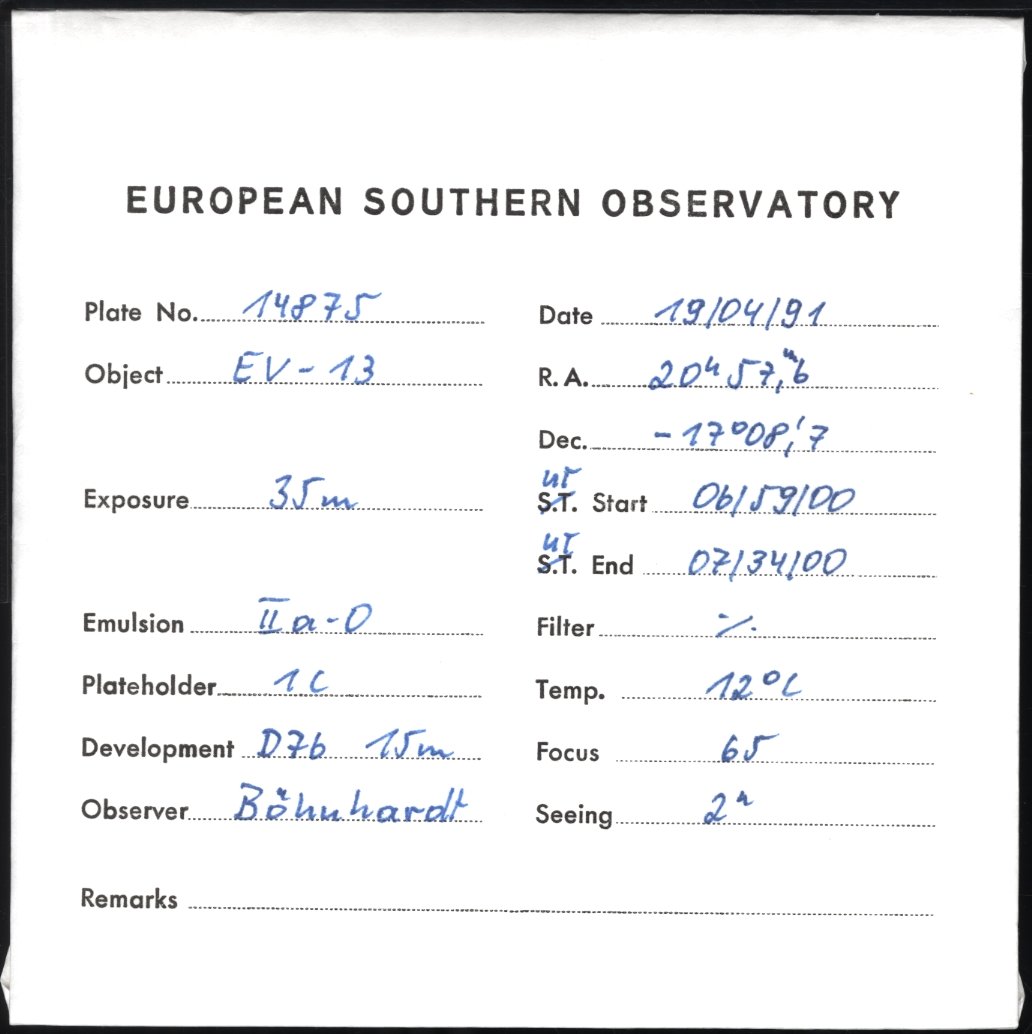 EUROPEAN SOUTHERN OBSERVATORY
Plate No. 14875 Date 19/04/91
Object EV-13 R.A. 20h 57,m6
Dec. -17°08,'7
UT
Exposure 35m S.T. Start 06/59/00
UT
S.T. End 07/34/00
Emulsion IIa-O Filter ·/.
Plateholder 1C Temp. 12°C
Development D76 15m Focus 65
Observer Böhnhardt Seeing 2"
Remarks